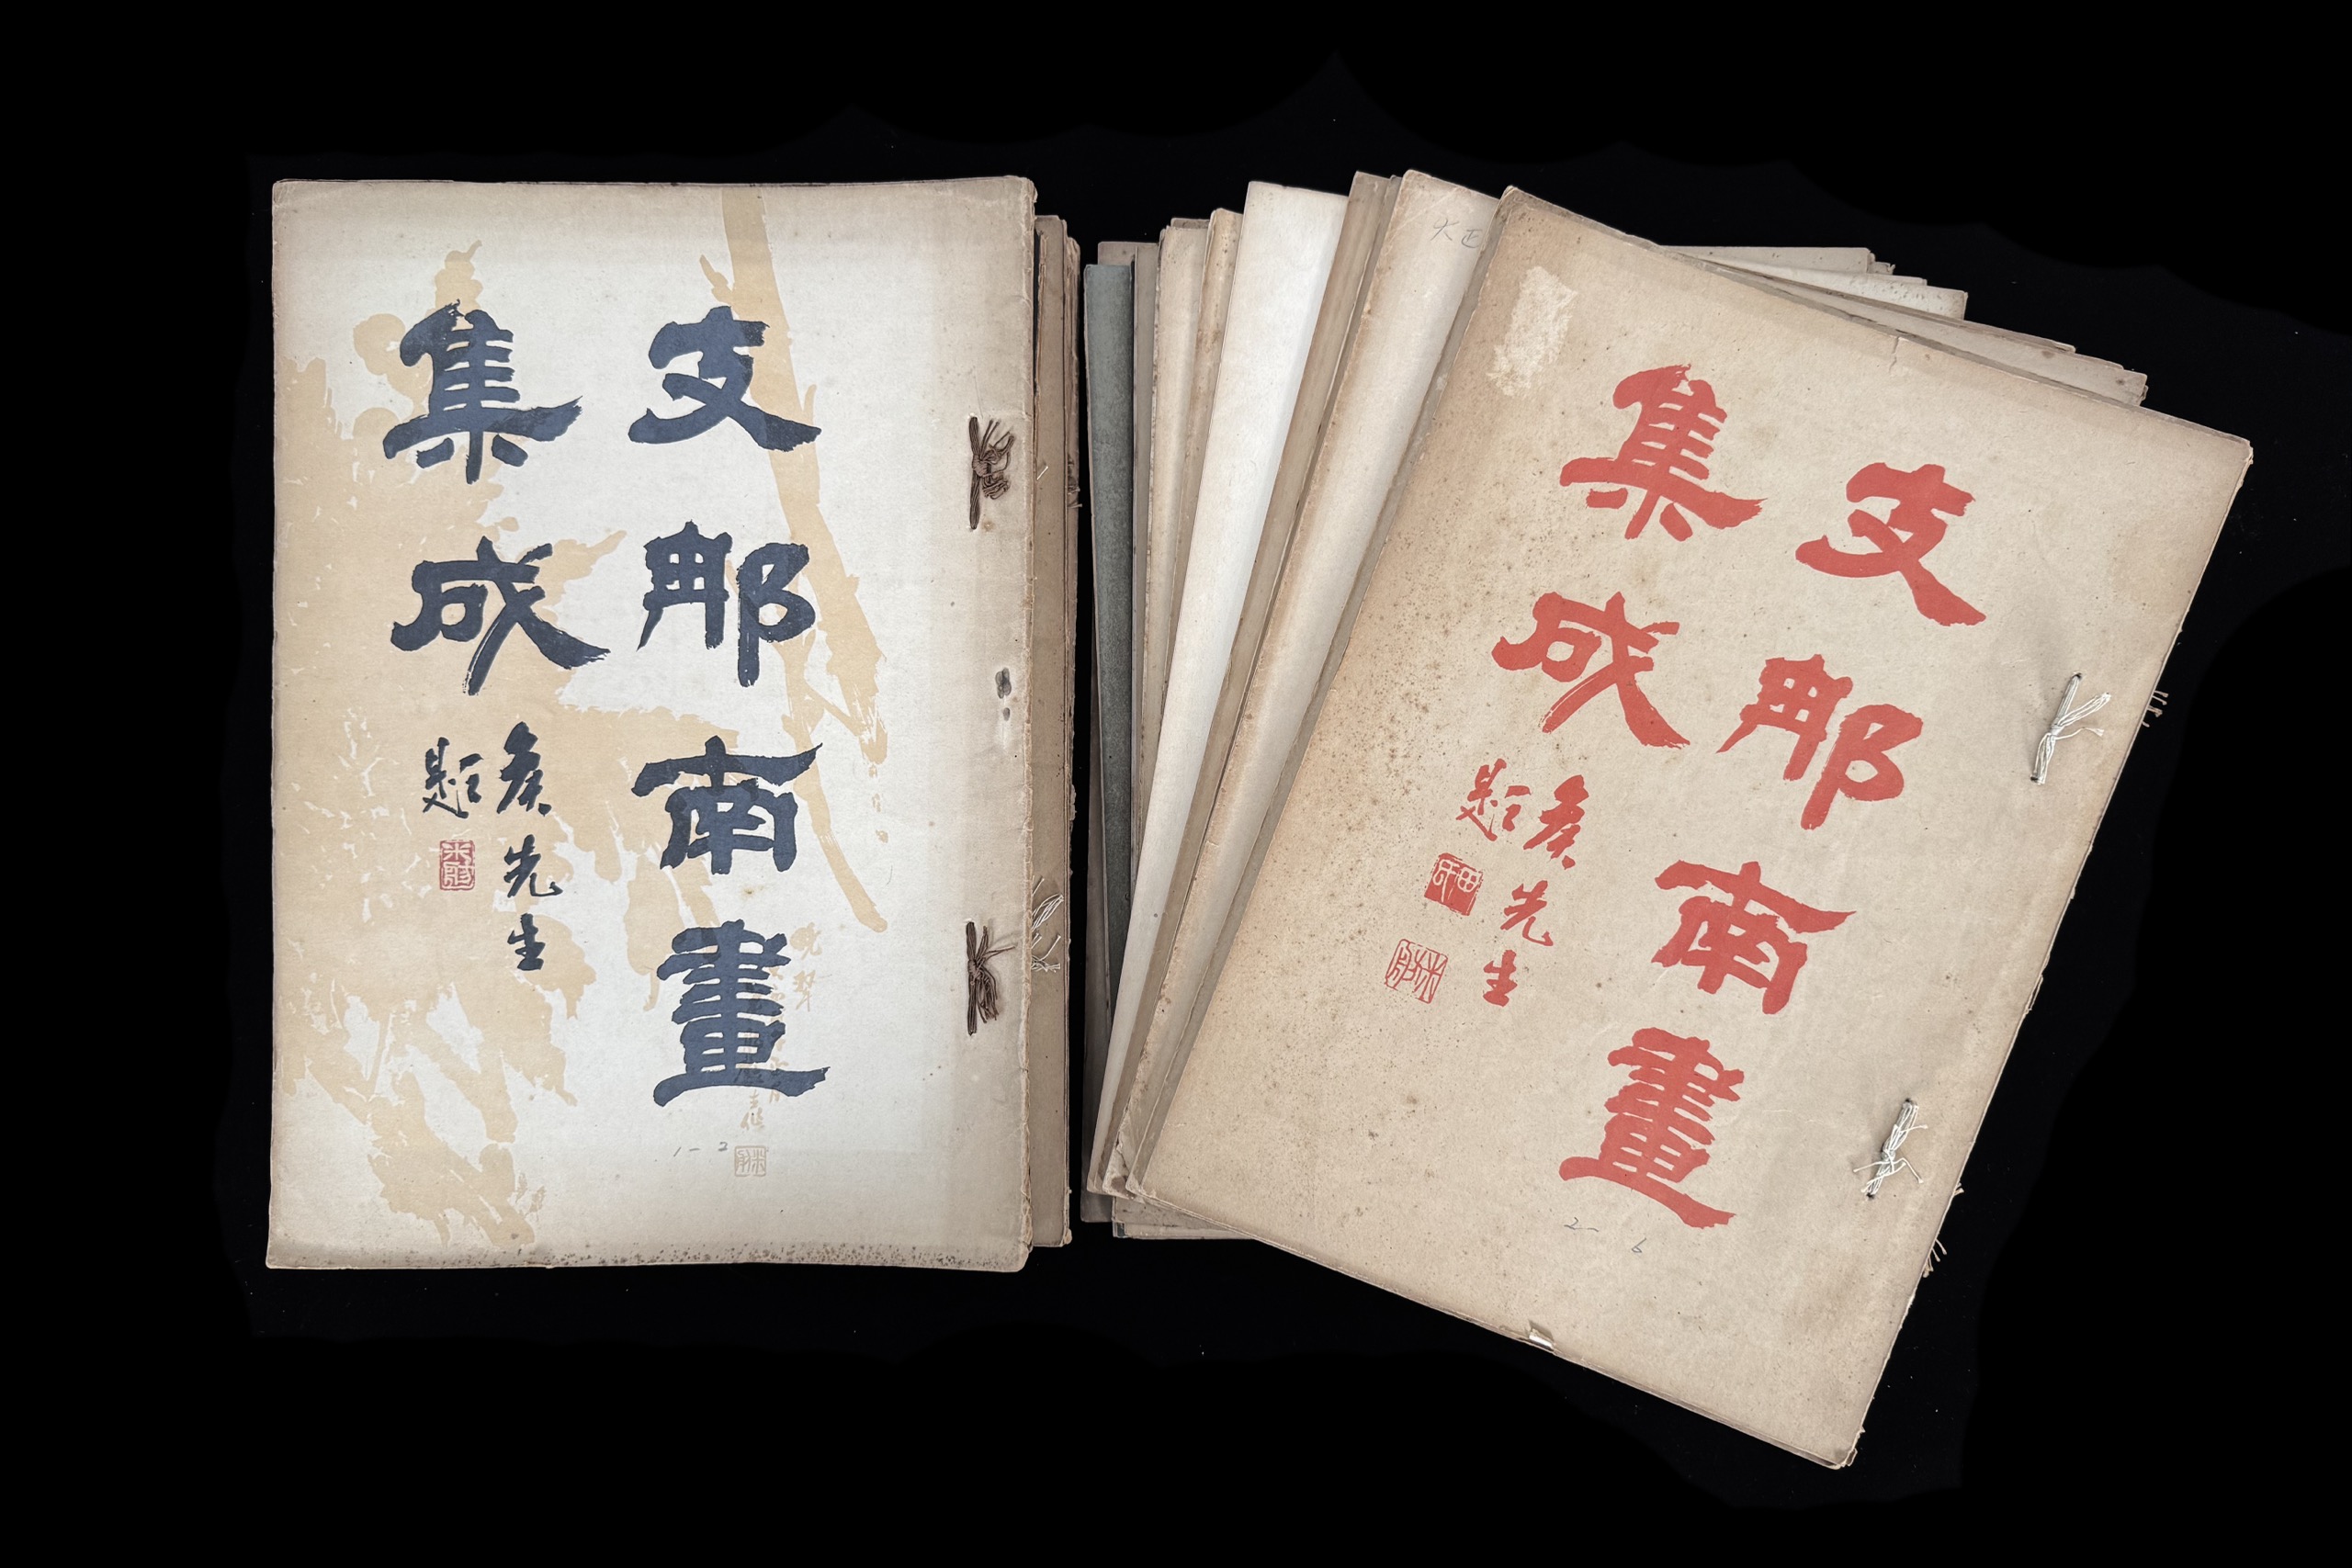 支那南畫
集成
矦先生
題
1-2
大正
支那南畫
集成
矦先生
題
田氏
米舫
2-6